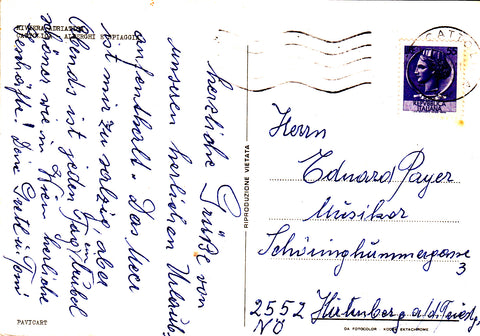 RIVIERA ADRIATICA
CATTOLICA ALBERGHI E SPIAGGIA
herzliche Grüße von
unseren herlichen Urlaubs
aufenthalt. Das Meer
ist mir zu salzig aber
Abends ist jeden Tag Trubel
schöner wie in Wien herliche
Geschäfte! Deine Gretl u. Toni
PAVICART
RIPRODUZIONE VIETATA
CATT
REPUBBLICA
ITALIANA
Herrn
Eduard Payer
Musiker
Schöninghummergasse
3
2552 Hirtenberg a/d.Triestg.
NÖ
DA FOTOCOLOR KODAK EKTACHROME